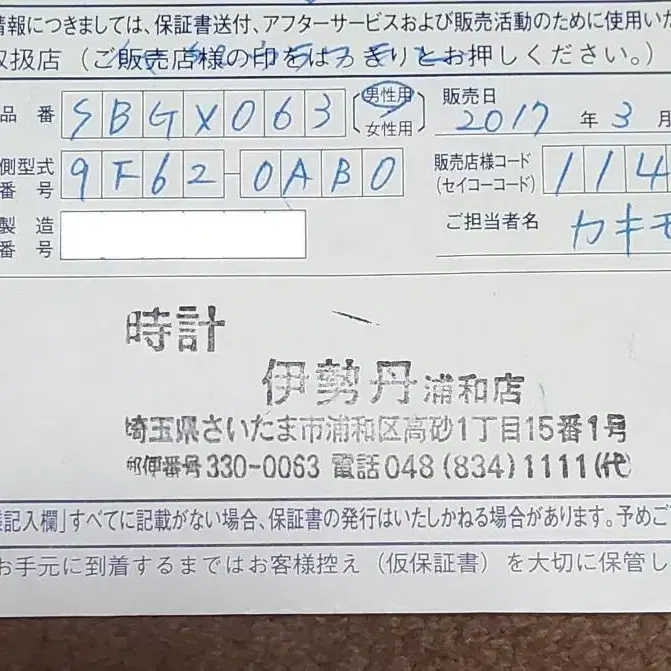 情報につきましては、保証書送付、アフターサービスおよび販売活動のために使用いた
取扱店（ご販売店様の印をはっきりとお押しください。）
品番 SBGX063 男性用 女性用 販売日 2017年3月
側型式番号 9F62-0AB0 販売店様コード（セイコーコード） 114
製造番号 ご担当者名 カキモ
時計
伊勢丹 浦和店
埼玉県さいたま市浦和区高砂1丁目15番1号
郵便番号330-0063 電話048(834)1111(代)
記入欄」すべてに記載がない場合、保証書の発行はいたしかねる場合があります。予めご
お手元に到着するまではお客様控え（仮保証書）を大切に保管し